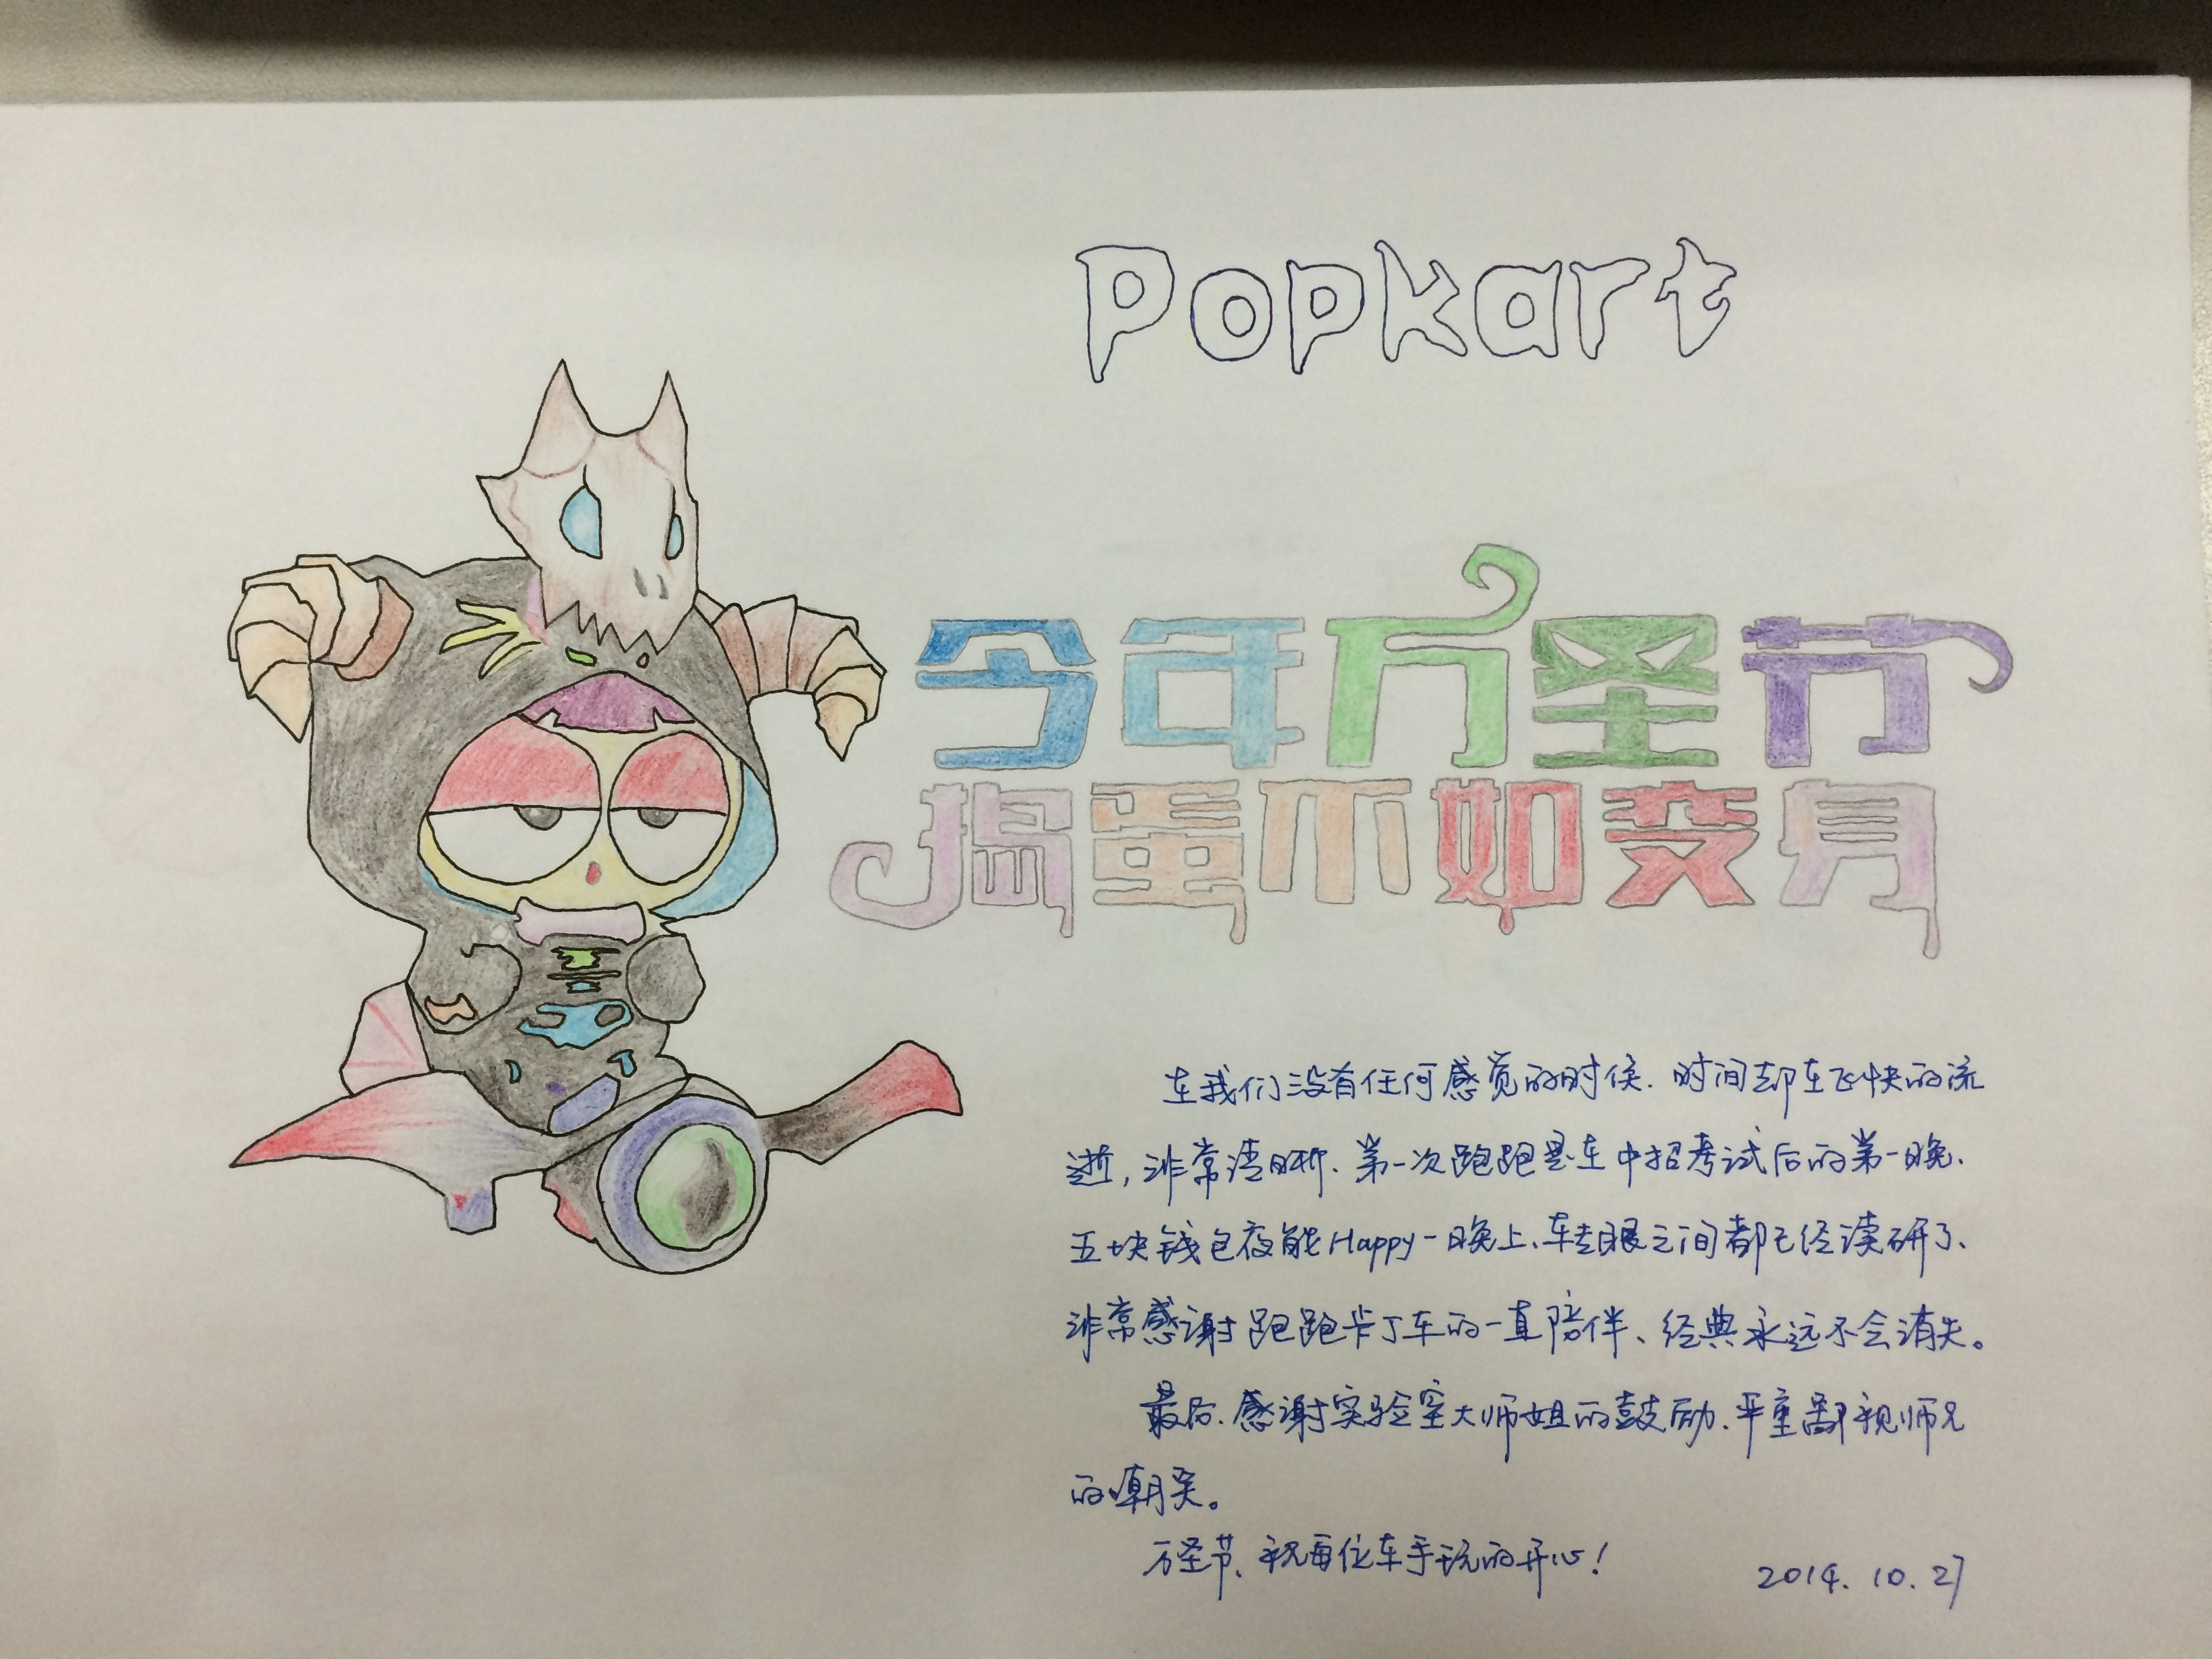 Popkart
今年万圣节
捣蛋不如变身
在我们没有任何感觉的时候、时间却在飞快的流
逝，非常清晰、第一次跑跑是在中招考试后的第一晚、
五块钱包夜能Happy一晚上、转眼之间都已经读研了、
非常感谢跑跑卡丁车的一直陪伴、经典永远不会消失。
最后、感谢实验室大师姐的鼓励、严重鄙视师兄
的嘲笑。
万圣节、祝每位车手玩的开心！
2014.10.27